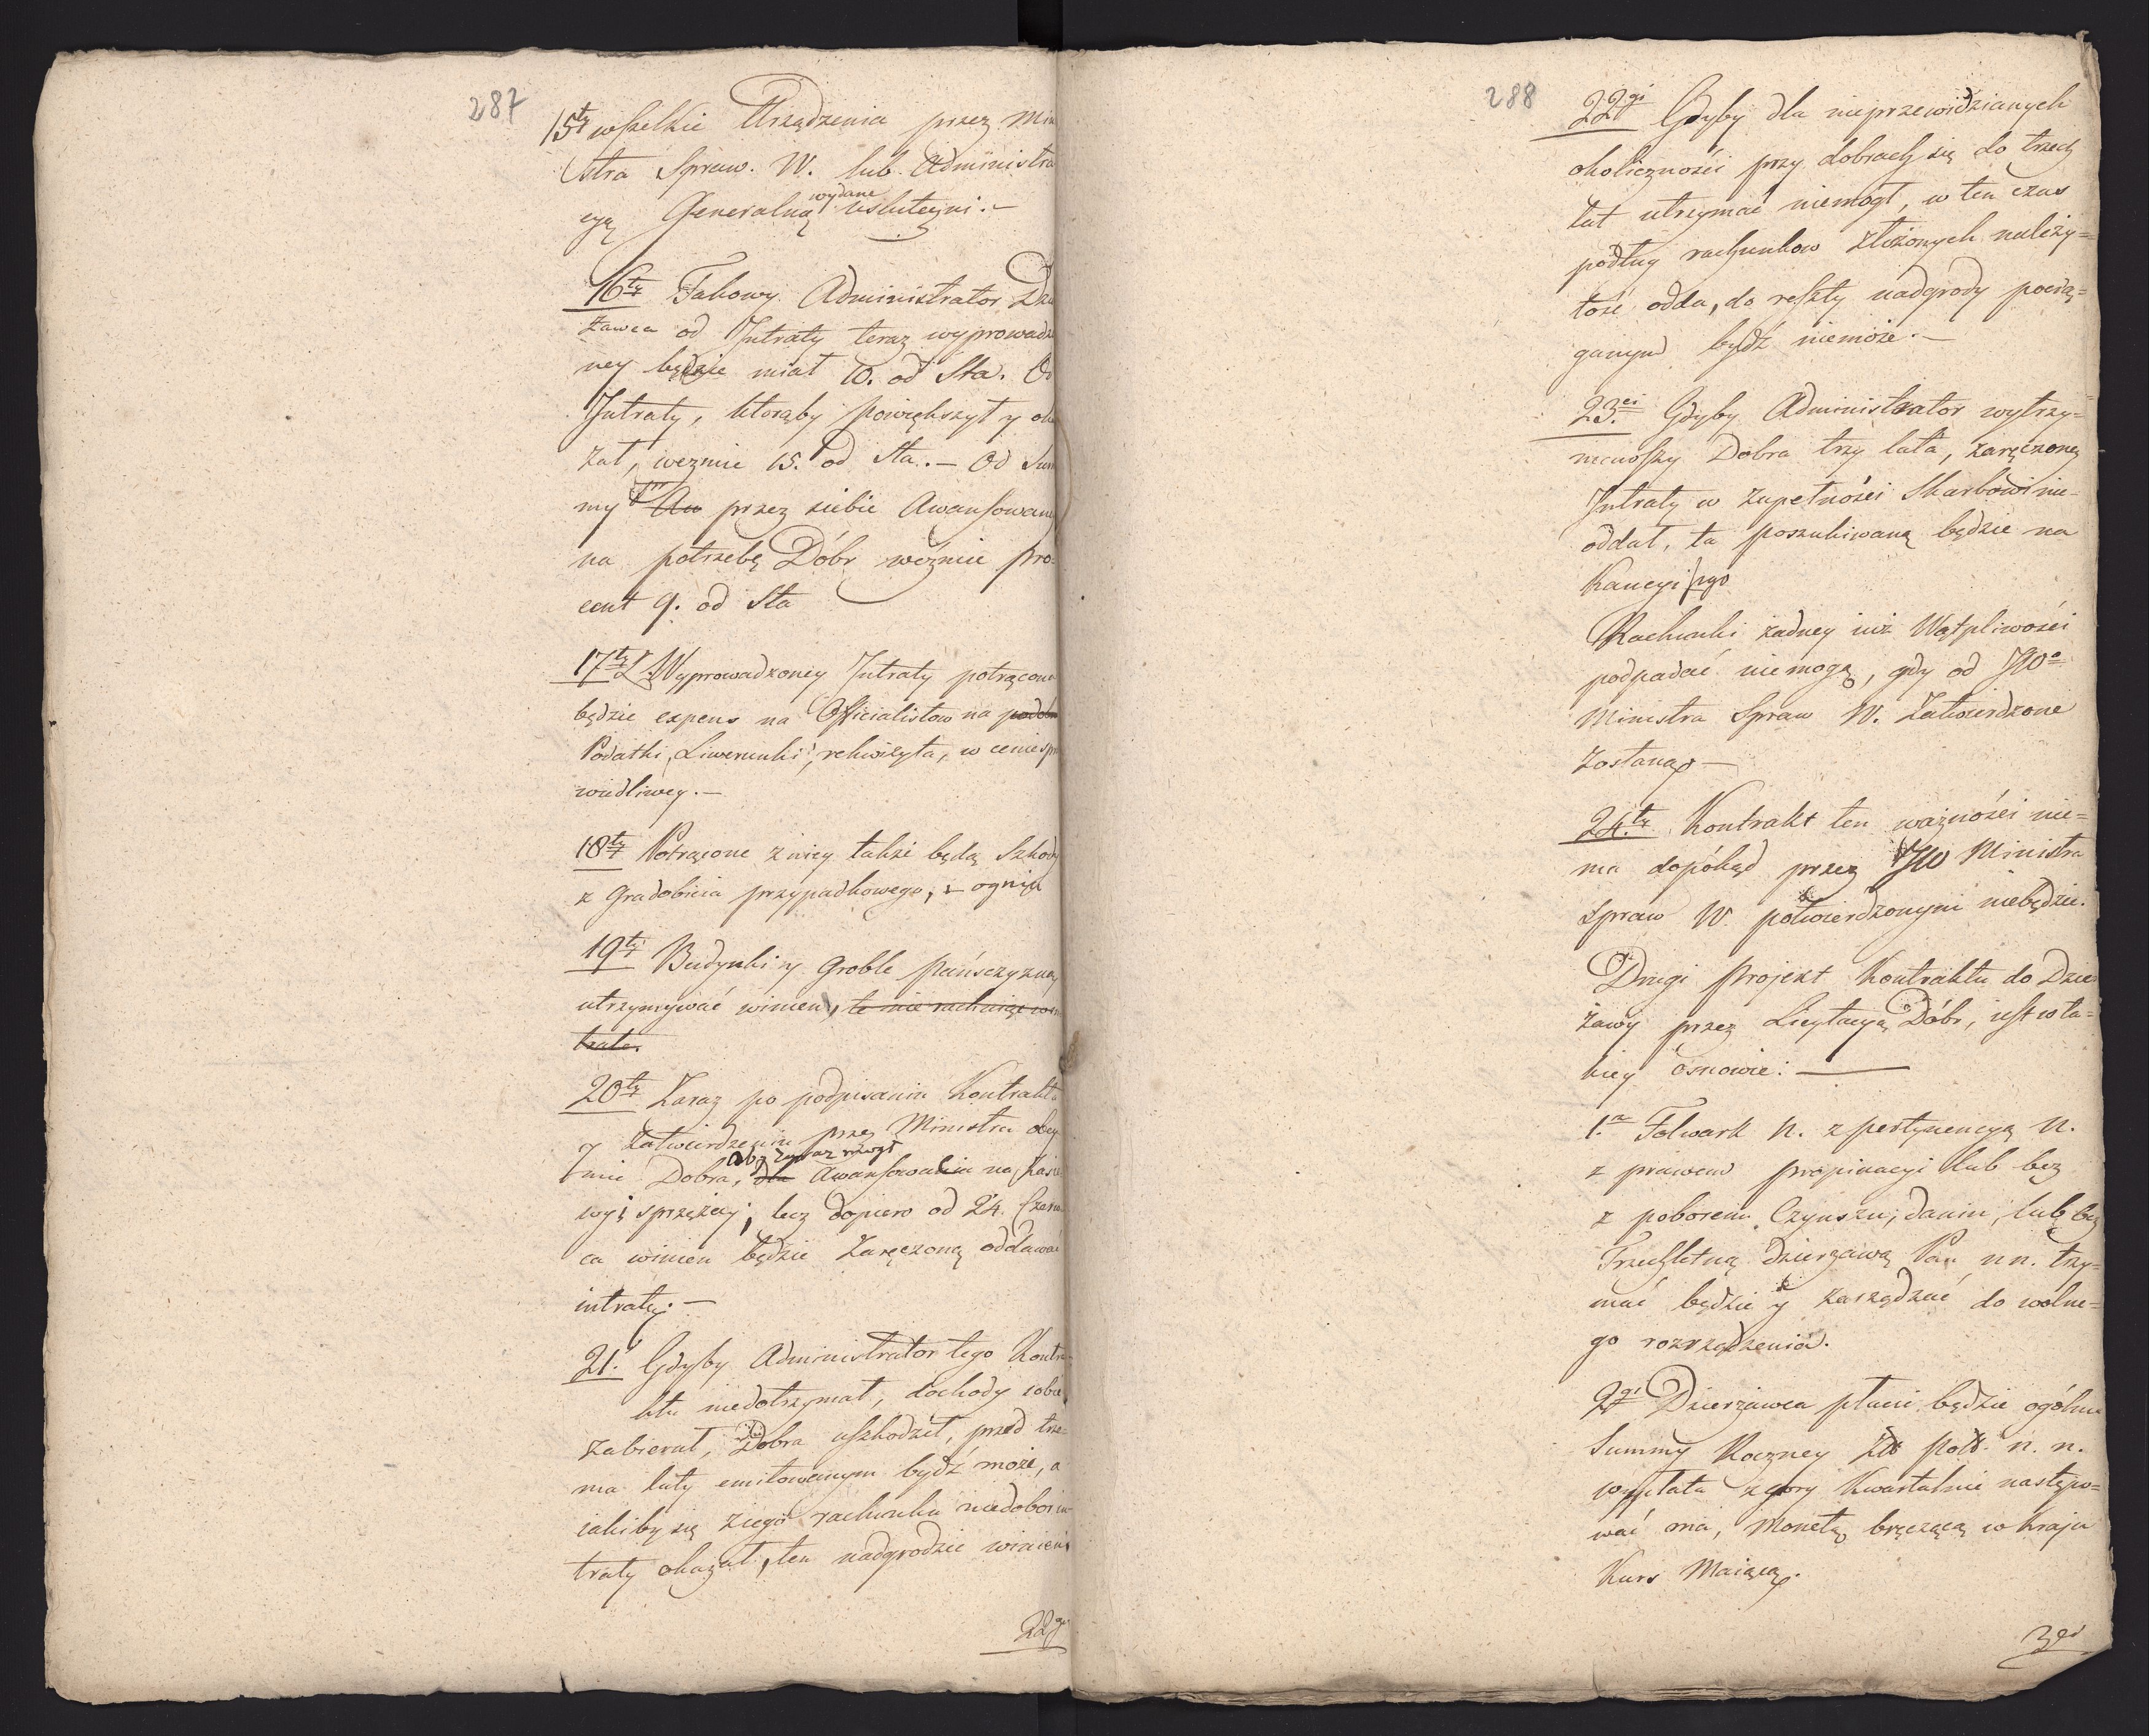 287
15ty wszelkie Urządzenia przez Mini
stra Spraw. W. lub Administra
wydane
cyą Generalną uskuteczni.—
16ty Takowy Administrator Dzie
żawca od Jntraty teraz wyprowadzo
ney będzie miał 10. od Sta. Od
Jntraty, ktorąby powiększył y oka
zał, weźmie 15. od Sta.— Od Sum
my przez siebie Awansowaney
na potrzebę Dóbr weźmie pro=
cent 9. od Sta
17ty Z Wyprowadzoney Jntraty potrącone
będzie expens na Officialistow na podobn
Podatki, Liwerunki, rekwizyta, w cenie spra
wiedliwey.—
18ty Potrącone z niey także będą Szkody
z Gradobicia przypadkowego, z ognia
19ty Budynki y Groble pańszczyzną
utrzymywać winien, te nie rachuiąc w in
tratę.
20ty Zaraz po podpisaniu Kontraktu
y zatwierdzeniu przez Ministra obey
aby zaraz mogł
mie Dobra, dla Awansowania na Zasie
wy i sprzężay, lecz dopiero od 24. Czerw
ca winien będzie Zaręczoną oddawać
intratę.—
21. Gdyby Administrator tego Kontra
ktu niedotrzymał, dochody sobie
zabierał, Dobra uszkodził, przed trze=
ma laty emitowanym bydź może, a
iakiby się z iego rachunku niedobor in
traty okazał, ten nadgrodzić winien
22gi
288
22gi Gdyby dla nieprzewidzianych
okoliczności przy dobrach się do trzech
lat utrzymać niemogł, w ten czas
podług rachunkow złożonych należy=
tość odda, do reszty nadgrody pocią=
ganym bydź niemoże.—
23ci Gdyby Administrator wytrzy=
mawszy Dobra trzy lata, zaręczoney
Jntraty w zupełności Skarbowi nie=
oddał, ta poszukiwaną będzie na
Kaucyi jego
Rachunki żadney iuż Wątpliwości
podpadać nie mogą, gdy od JWo
Ministra Spraw W. Zatwierdzone
Zostaną—
24.ty Kontrakt ten ważności nie=
ma dopókąd przez JW Ministra
Spraw W. potwierdzonym niebędzie.
Drugi projekt Kontraktu do Dzier
żawy przez Licytacyą Dóbr, iest w ta=
kiey osnowie: —
1.o Folwark N. z pertynencyą N.
z prawem propinacyi lub bez
z poborem Czynszu, danin, lub bez
Trzechletną dzierżawą Pan nn. trzy=
mać będzie y zarządzać do wolne=
go rozrządzenia.
2gi Dzierżawca płacić będzie ogólney
Summy Roczney Złt pol. n. n.
wypłata z gory Kwartalnie następo=
wać ma, Monetą brzęczącą w Kraju
Kurs Maiącą.
3ci